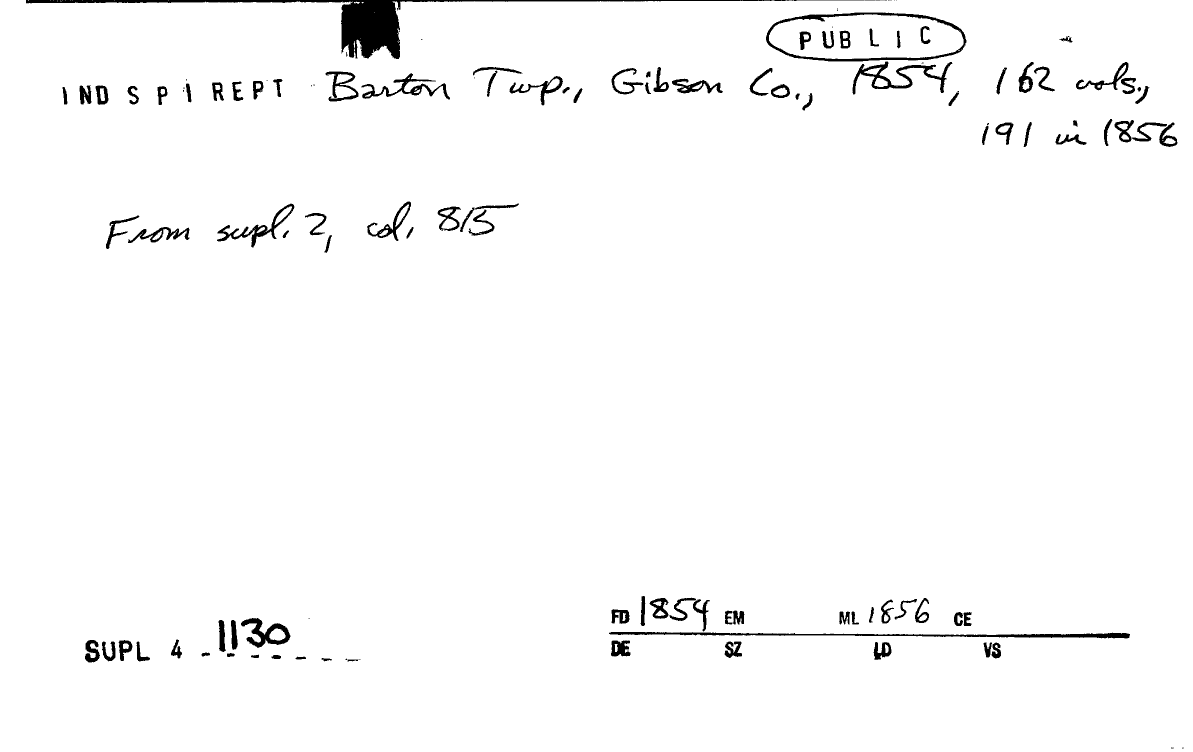 PUBLIC
IND S P I REPT Barton Twp., Gibson Co., 1854, 162 vols.,
191 in 1856
From supl. 2, col. 815
FD 1854 EM ML 1856 CE
SUPL 4 1130
DE SZ LD VS